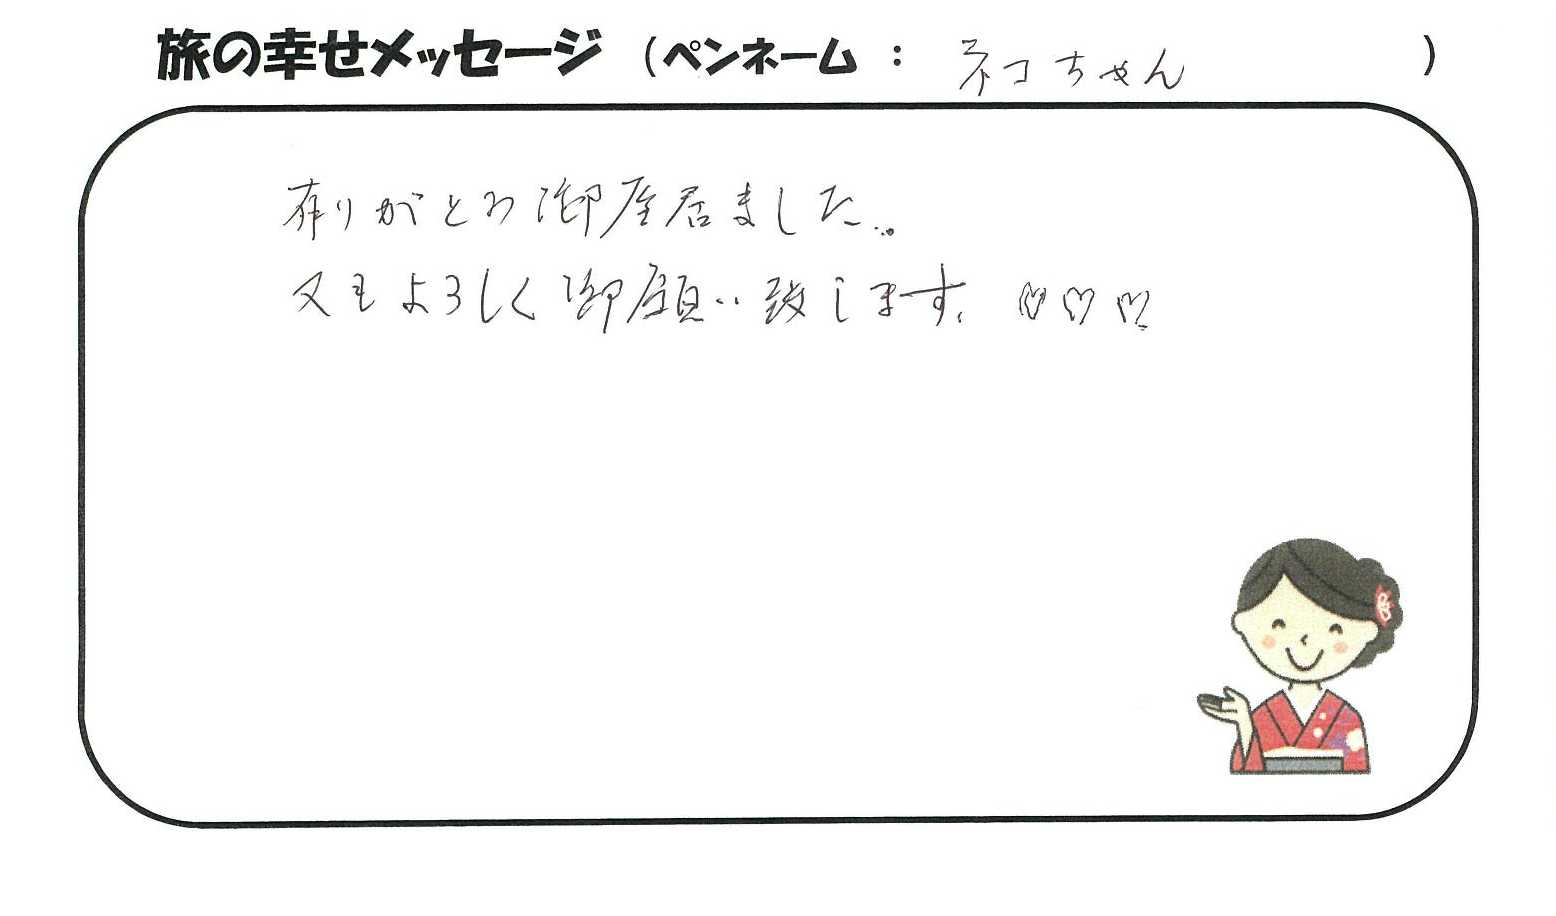 旅の幸せメッセージ (ペンネーム : ネコちゃん )
有りがとう御座居ました...
又もよろしく御願い致します。♡♡♡